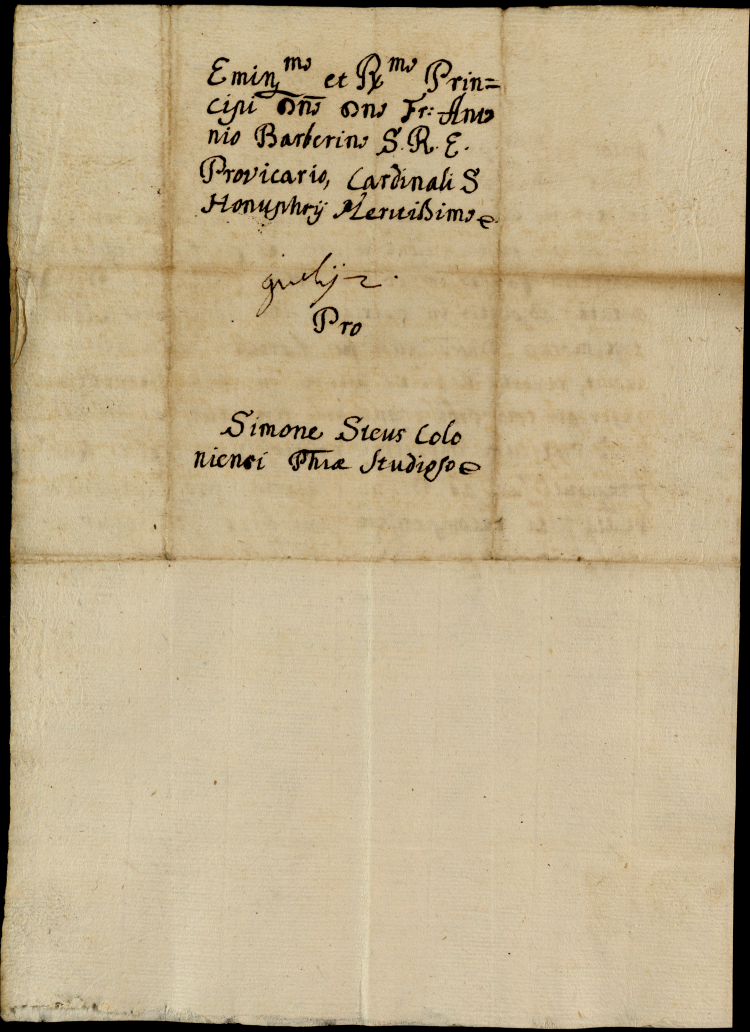 Emin^mo et R^mo Prin=
cipi Dño Dno Fr: Anto
nio Barberino S. R. E.
Provicario, Cardinali S
Honuphrij Meritißimo
Pro
Simone Steus Colo
niensi Phiæ Studioso